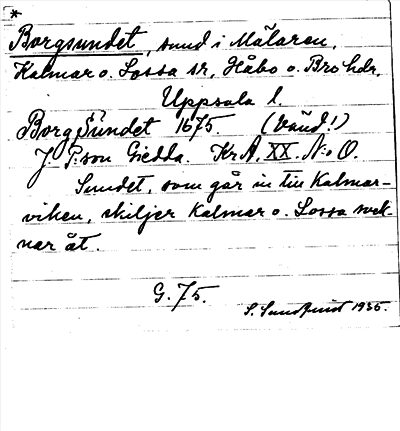 *
Borgsundet, sund i Mälaren,
Kalmar o. Lossa sr, Håbo o. Bro hdr,
Uppsala l.
Borg Sundet 1675. (Vänd!)
J. P:son Giedda. KrA, XX. N:o O.
Sundet, som går in till Kalmar-
viken, skiljer Kalmar o. Lossa sock-
nar åt.
G. 75.
S. Sundquist 1935.